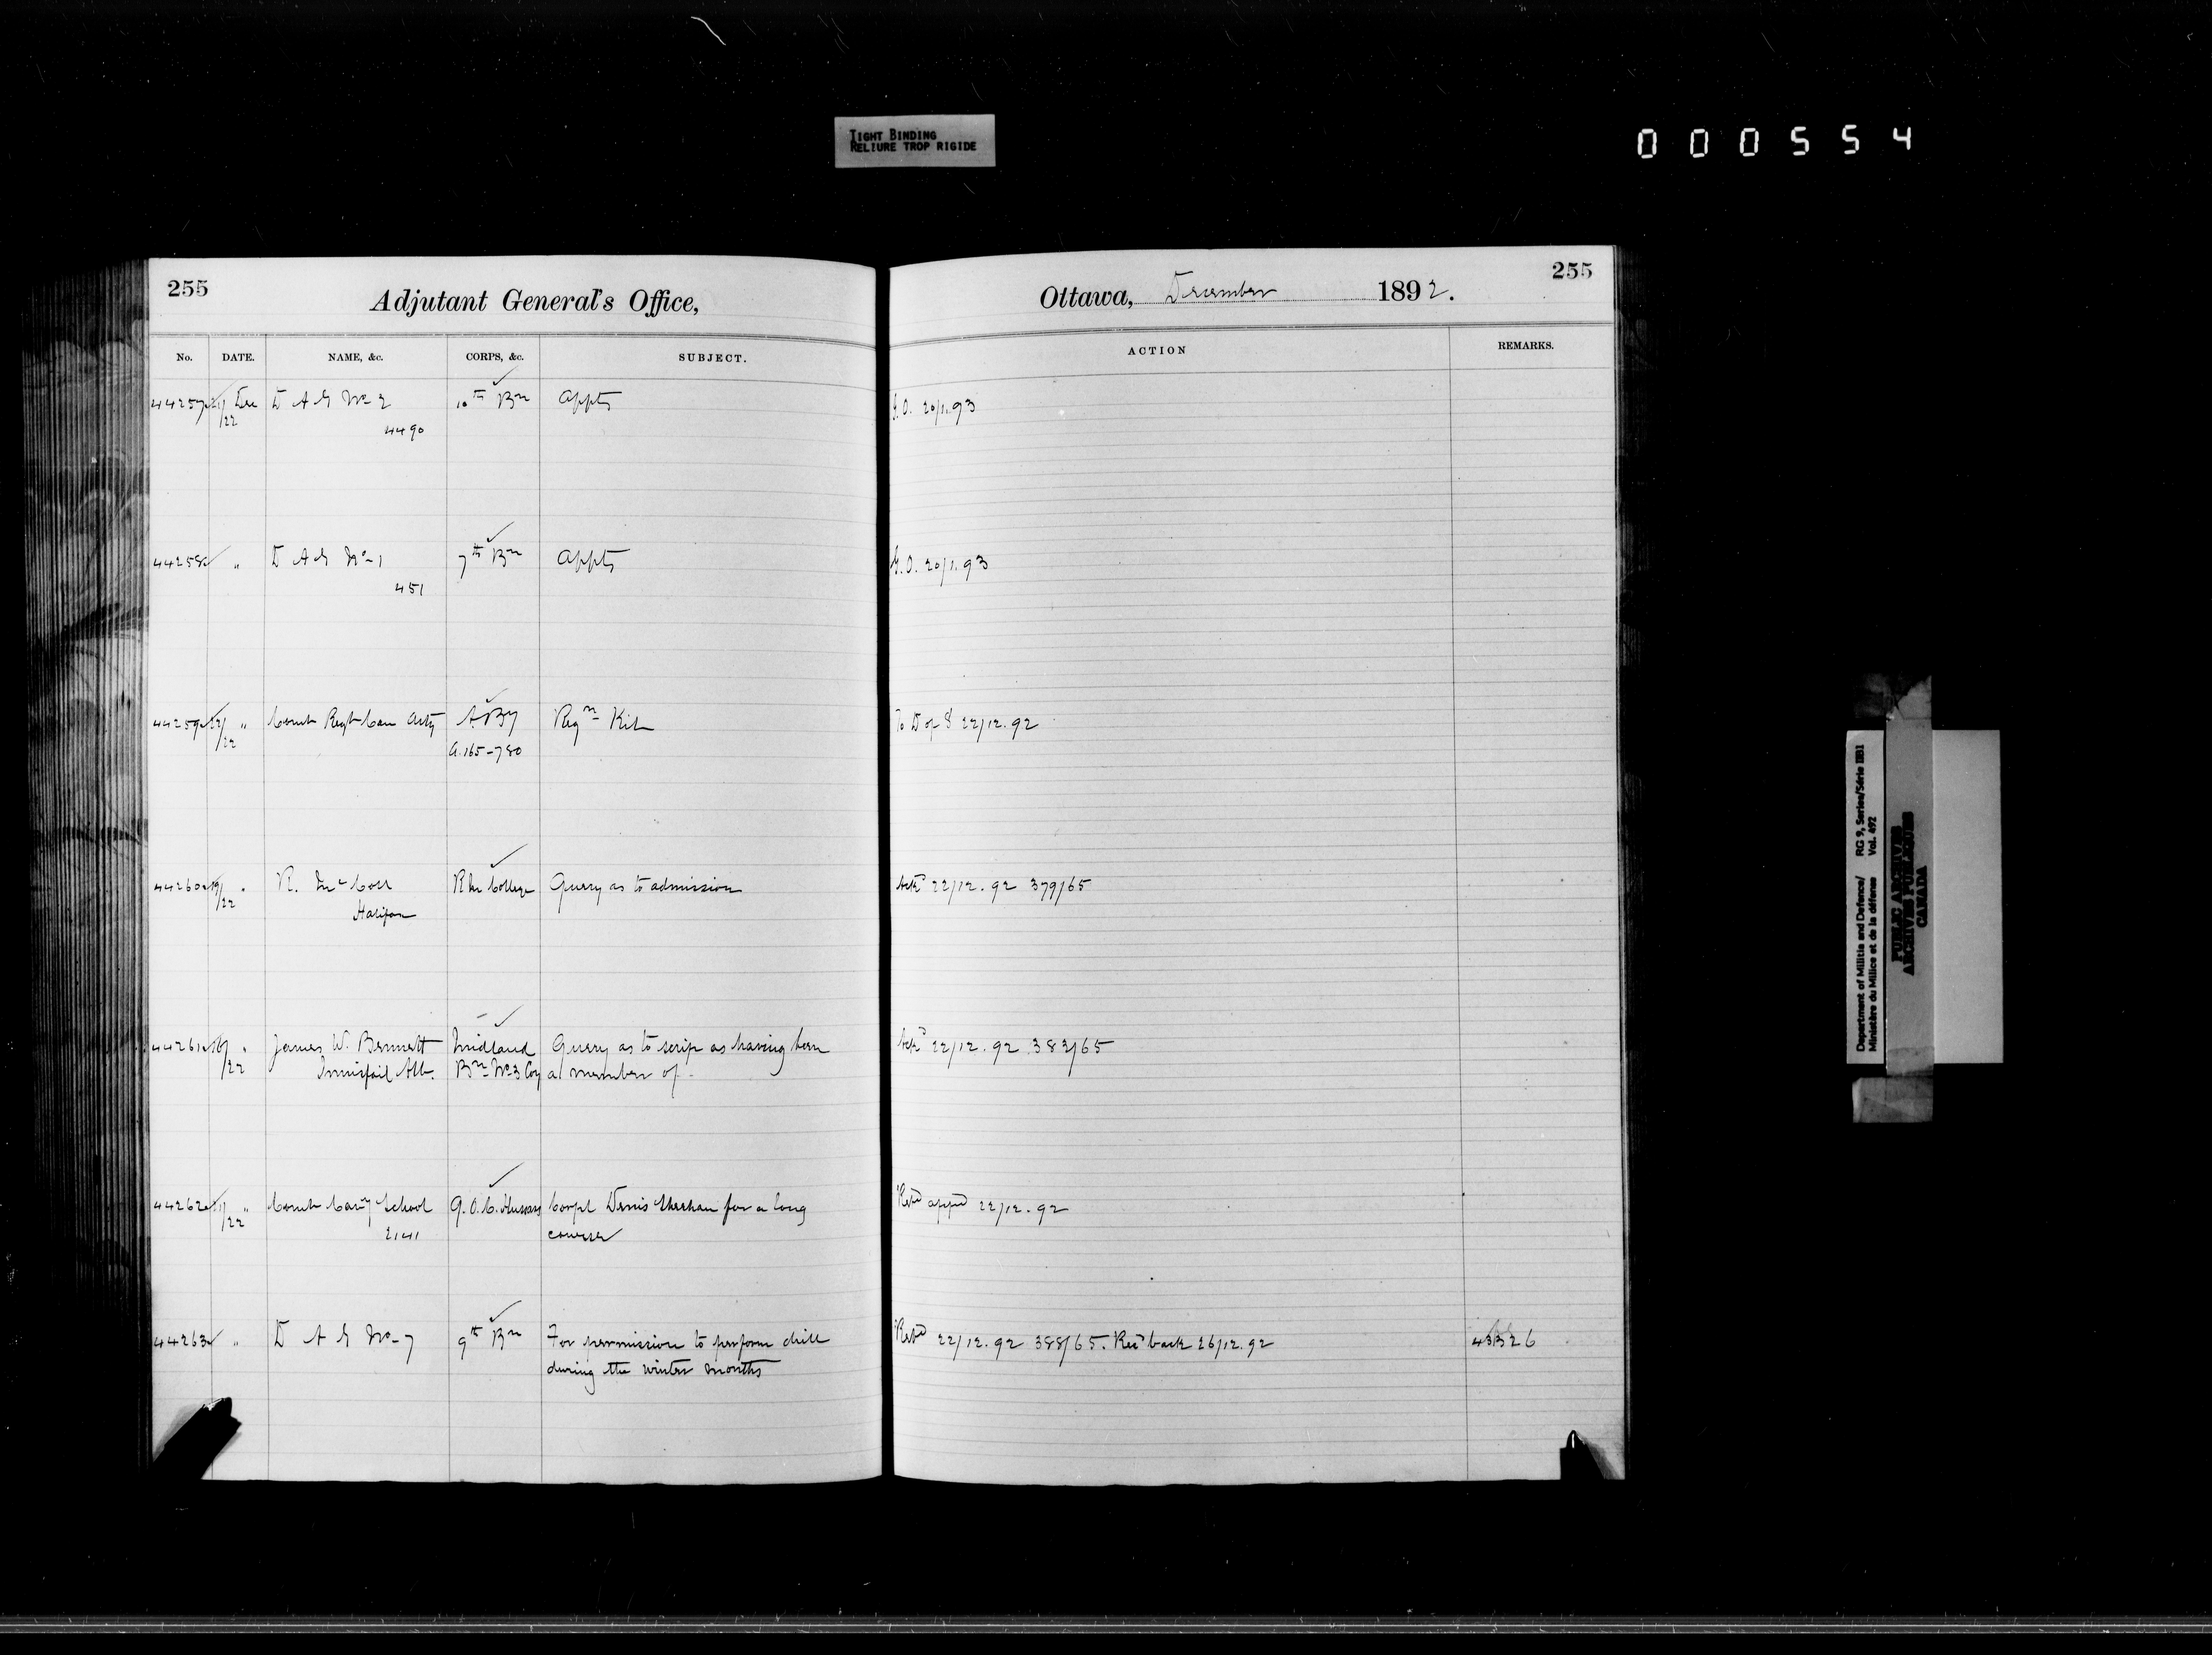 TIGHT BINDING
RELIURE TROP RIGIDE
000554
255
Adjutant General's Office,
Ottawa, December 1892.
255
No. DATE. NAME, &c. CORPS, &c. SUBJECT. ACTION REMARKS.
44257 21/22 Dec D A G No 2 10th Bn Appts G.O. 20/1.93
4490
44258 " D A G No 1 7th Bn Appts G.O. 20/1.93
451
44259 " Comdt Regt Can Arty A By Reqn Kit To D of S 22/12.92
22 a.165-780
44260 19/22 " R. McColl R M College Query as to admission Ackd 22/12.92 379/65
Halifax
44261 16/22 " James W. Bennett Midland Query as to scrip as having been Ackd 22/12.92 383/65
Innisfail Alb. Bn No 3 Coy a member of
44262 21/22 " Comdt Cavy School Q.O.C. Hussars Corpl Denis Sheehan for a long Retd appd 22/12.92
2141 course
44263 " D A G No 7 9th Bn For permission to perform drill Retd 22/12.92 388/65. Recd back 26/12.92
during the winter months
Department of Militia and Defence/ RG 9, Series/Série IIB1
Ministère du Milice et de la défense Vol. 492
PUBLIC ARCHIVES
ARCHIVES PUBLIQUES
CANADA